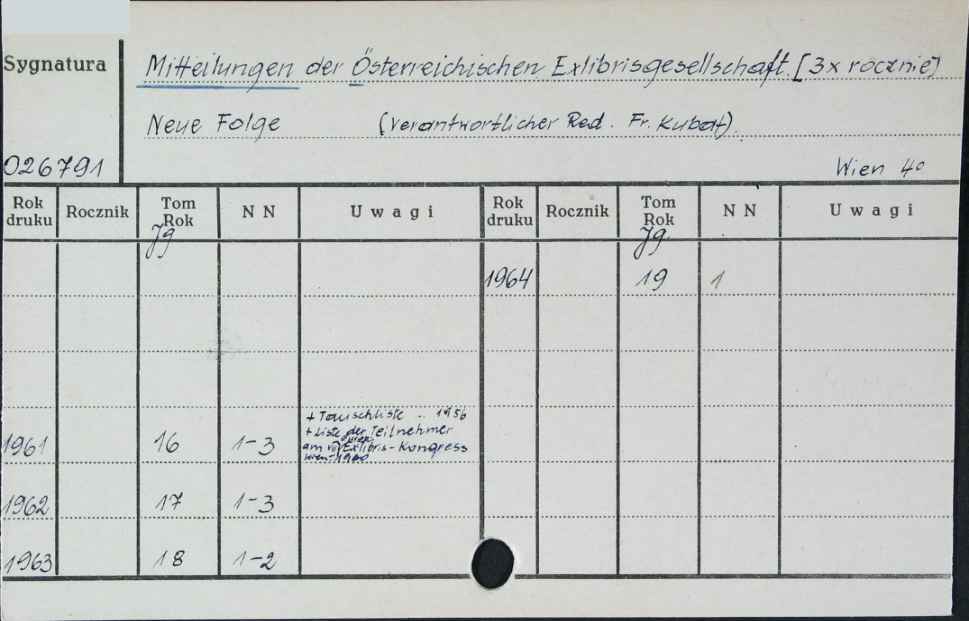 Sygnatura
Mitteilungen der Österreichischen Exlibrisgesellschaft. [3x rocznie]
Neue Folge (Verantwortlicher Red. Fr. Kubat).
026791
Wien 4°
Rok druku Rocznik Tom Rok NN Uwagi Rok druku Rocznik Tom Rok NN Uwagi
Jg Jg.
1964 19 1
+ Tauschliste .. 1956
+ Liste der Teilnehmer
1961 16 1-3 am Exlibris-Kongress
Wien-1960
1962 17 1-3
1963 18 1-2